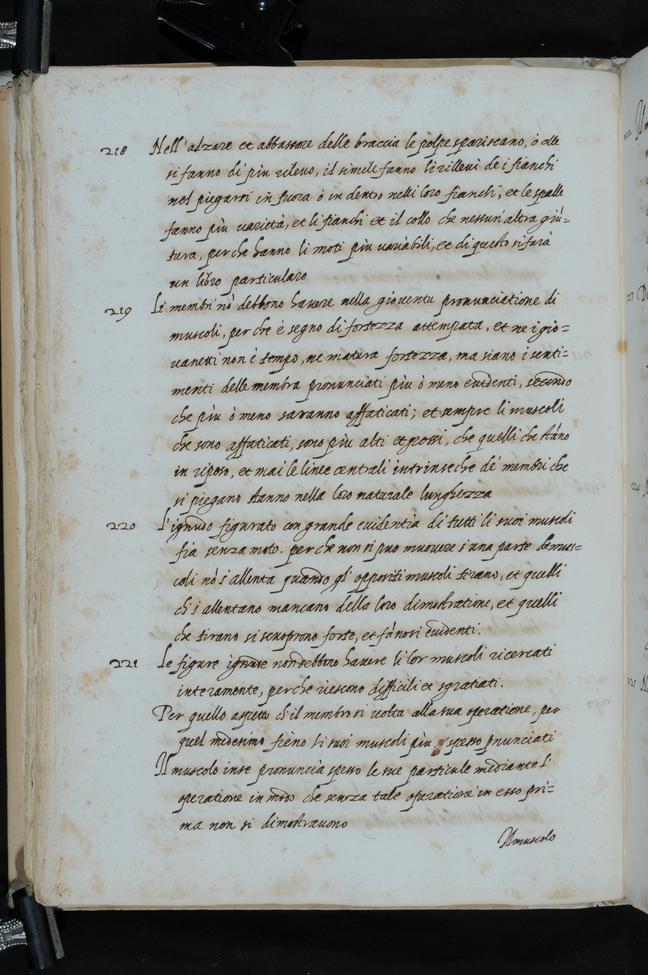 218 Nell'alzare et abbassare delle braccia le polpe spariscano, ò elle
si fanno di più rilevo, il simile fanno li rillevi de i fianchi
nel piegarsi in fuora ò in dentro nelli loro fianchi, et le spalle
fanno più varietà, et li fianchi et il collo che nessun altra giù=
tura, perche hanno li moti più variabili, et di questo si farà
un libro particulare
219 Li membri nō debbono havere nella gioventu pronunciatione di
muscoli, perche è segno di fortezza attempata, et ne i gio=
vanetti non è tempo, ne matura fortezza, ma siano i senti=
menti delle membra pronunciati più ò meno evidenti, secondo
che più ò meno saranno affaticati; et sempre li muscoli
che sono affaticati, sono più alti et grossi, che quelli che stāno
in riposo, et mai le linee centrali intrinseche de' membri che
si piegano stanno nella loro naturale lunghezza
220 L'ignudo figurato con grande evidentia di tutti li suoi muscoli
fia senza moto. perche non si puo muovere s'una parte de mus=
coli nō s'allenta quando gl'oppositi muscoli tirano, et quelli
ch's'allentano mancano della loro dimostratione, et quelli
che tirano si scuoprono forte, et fānosi evidenti.
221 Le figure ignude non debbono havere li lor muscoli ricercati
interamente, perche riescono difficili et sgratiati.
Per quello aspetto ch'il membro si volta alla sua operatione, per
quel medesimo fieno li suoi muscoli più spesso pnunciati
Il muscolo in se pronuncia spesso le sue particule mediante l'
operatione in modo che senza tale operatione in esso pri=
ma non si dimostravono
Il muscolo